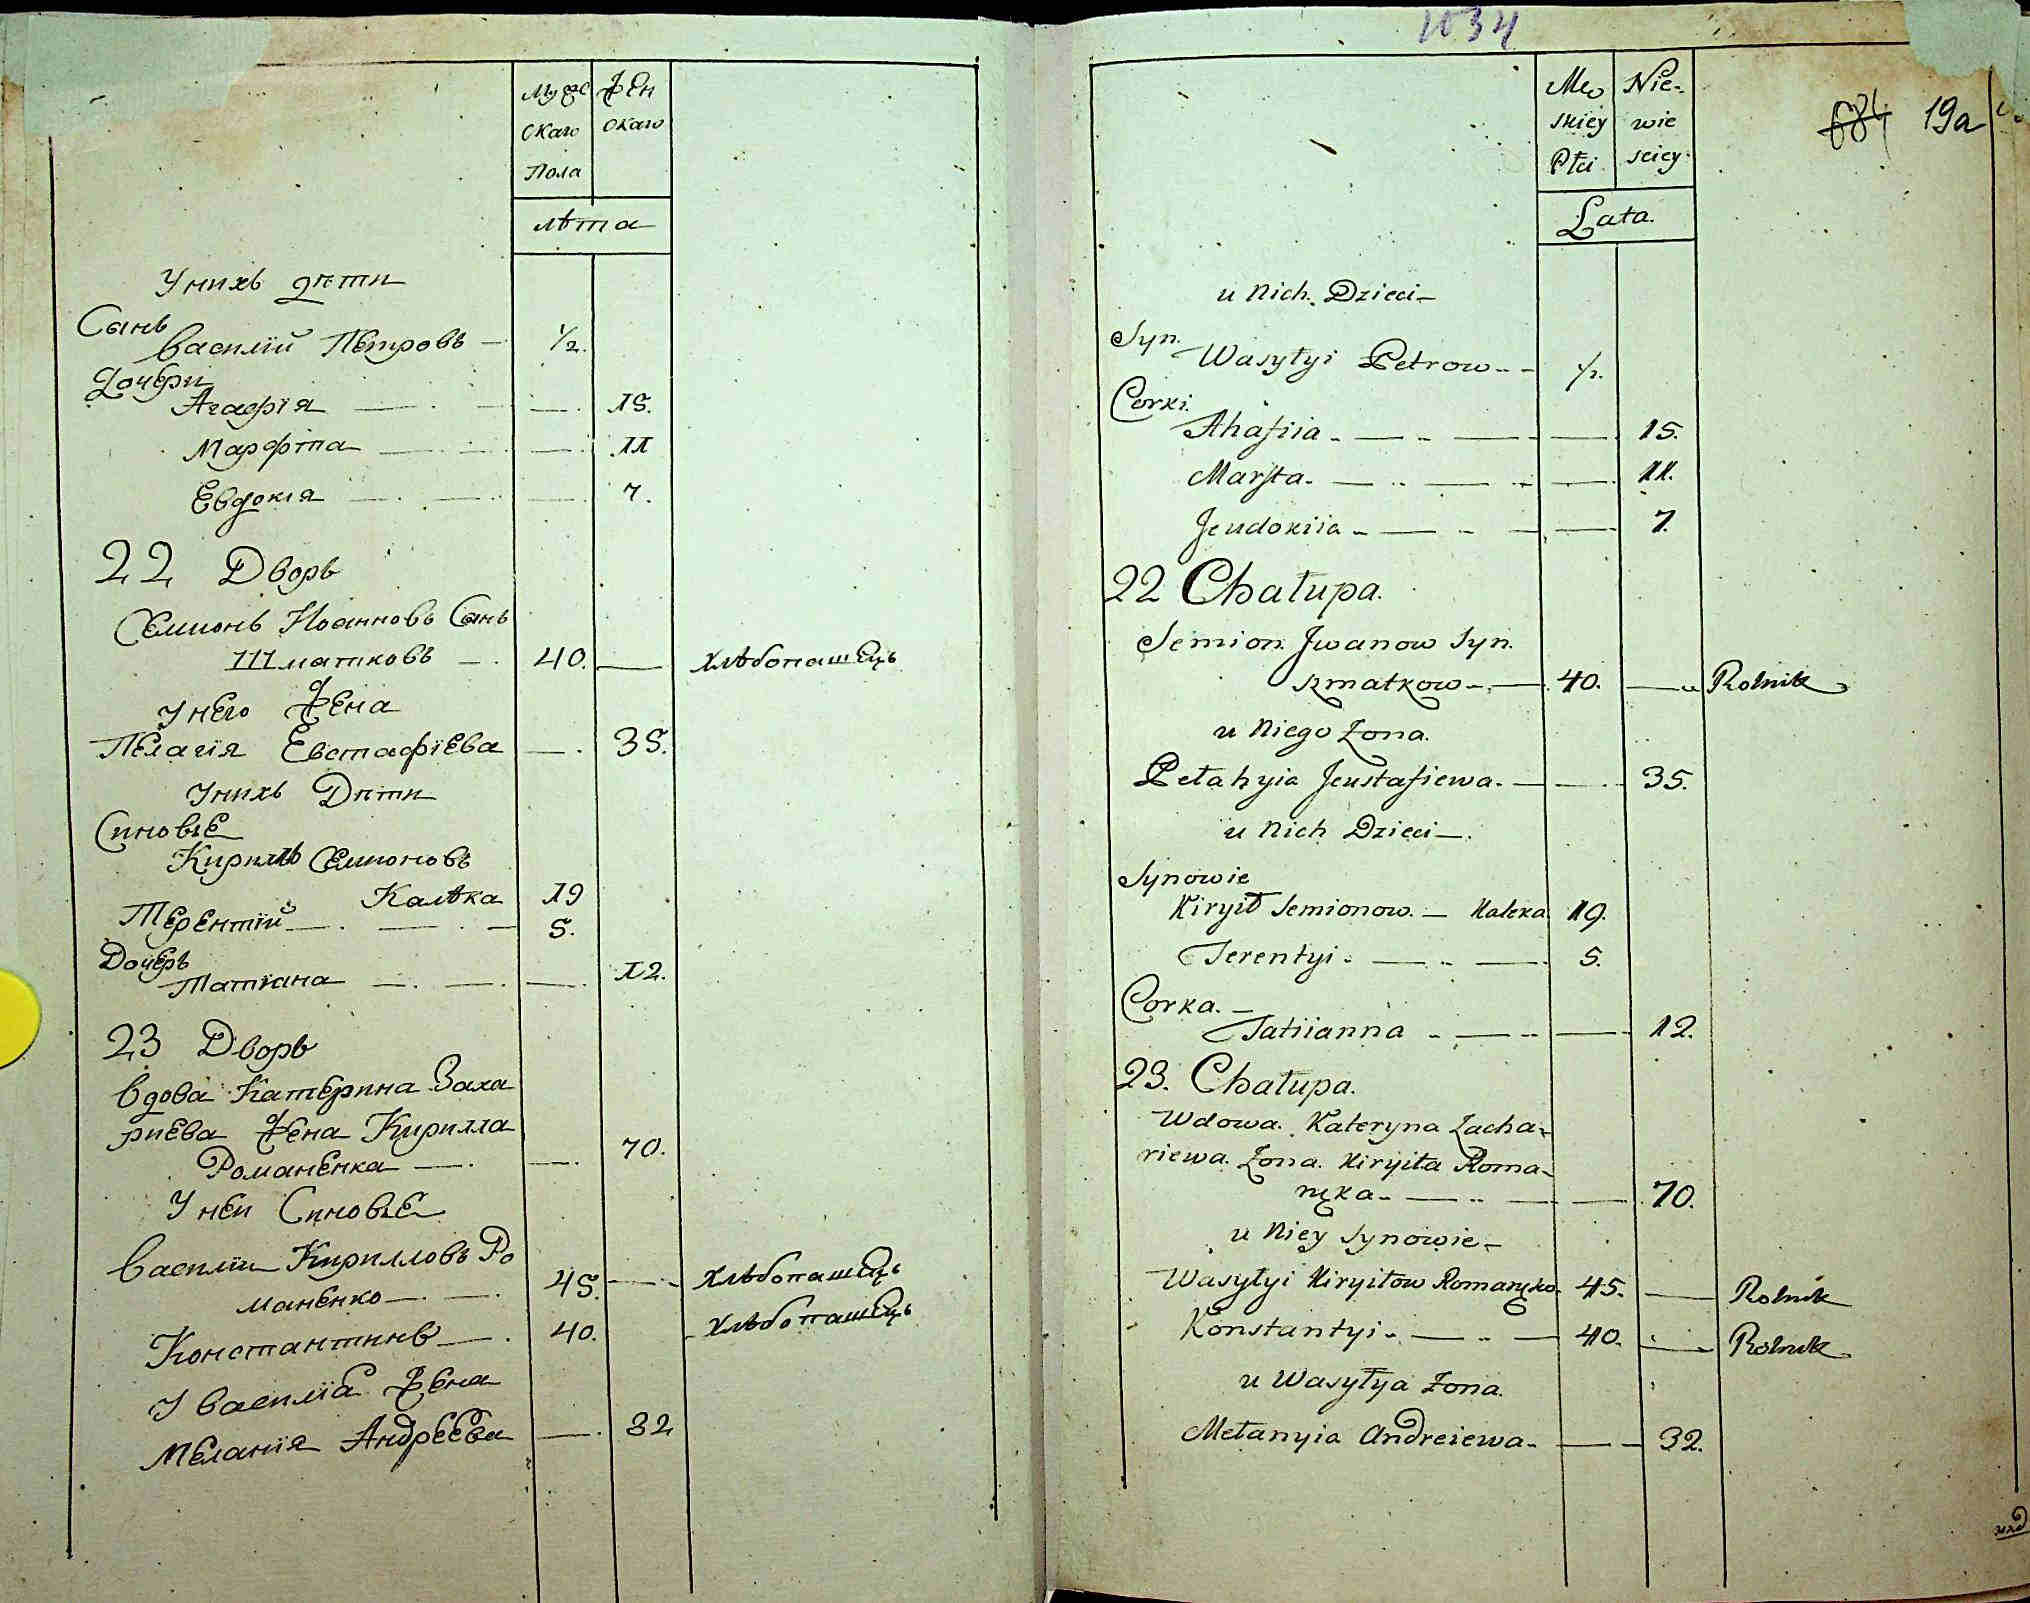 Мужс Жен
скаго скаго
Пола
лѣта
У нихъ дѣти
Сынъ
Василій Петровъ — 1/2.
Дочери
Агафія — — 15.
Марфта — — 11
Евдокія — — 7.
22 Дворъ
Семионъ Иоанновъ Сынъ
Шматковъ — 40. — хлѣбопашецъ
У него Жена
Пелагія Евстафіева — 35.
У нихъ Дѣти
Синовье
Кирилъ Семионовъ
Калѣка 19
Терентій — — 5.
Дочерь
Татіана — — 12.
23 Дворъ
Вдова Катерина Заха
риева Жена Кирилла
Романенка — — 70.
У неи Синовье
Василіи Кирилловъ Ро
маненко — 45. — Хлѣбопашецъ
Константинъ — 40. Хлѣбопашецъ
У Василіа Жена
Меланія Андреева — 32
1034
Mę Nie-
skiey wie
Płci. sciey.
684 19a
Lata.
u Nich Dzieci —
Syn.
Wasyłyi Petrow — 1/2.
Corki.
Ahafiia — — 15.
Marfta — — 11.
Jeudokiia — — 7.
22 Chałupa.
Semion Jwanow Syn.
Szmatkow — 40. — Rolnik
u Niego Zona.
Pełahyia Jeustafiewa — 35.
u Nich Dzieci —
Synowie
Kiryłł Semionow — Kaleka 19.
Terentyi — — 5.
Corka. —
Tatiianna — — 12.
23. Chałupa.
Wdowa Kateryna Zacha-
riewa Zona Kiryiła Roma-
nęka — — 70.
u Niey Synowie —
Wasyłyi Kiryiłow Romanęko 45. — Rolnik
Konstantyi — — 40. — Rolnik
u Wasyłya Zona.
Mełanyia Andreiewa — — 32.